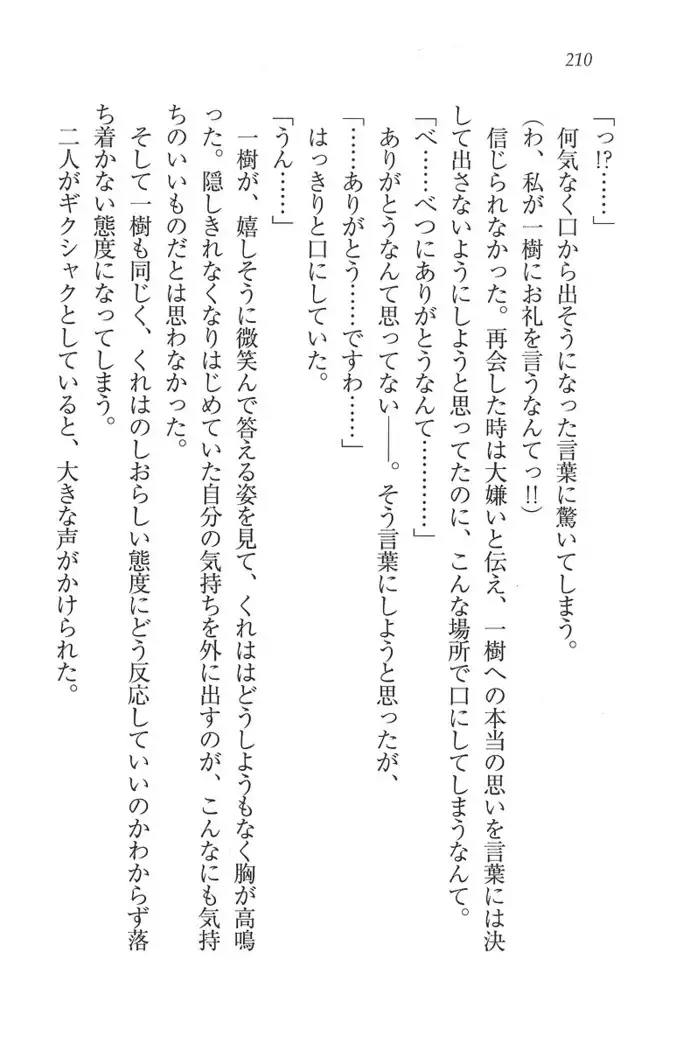 210
「っ!?……」
何気なく口から出そうになった言葉に驚いてしまう。
（わ、私が一樹にお礼を言うなんてっ!!）
信じられなかった。再会した時は大嫌いと伝え、一樹への本当の思いを言葉には決
して出さないようにしようと思ってたのに、こんな場所で口にしてしまうなんて。
「べ……べつにありがとうなんて…………」
ありがとうなんて思ってない――。そう言葉にしようと思ったが、
「……ありがとう……ですわ……」
はっきりと口にしていた。
「うん……」
一樹が、嬉しそうに微笑んで答える姿を見て、くれははどうしようもなく胸が高鳴
った。隠しきれなくなりはじめていた自分の気持ちを外に出すのが、こんなにも気持
ちのいいものだとは思わなかった。
そして一樹も同じく、くれはのしおらしい態度にどう反応していいのかわからず落
ち着かない態度になってしまう。
二人がギクシャクとしていると、大きな声がかけられた。